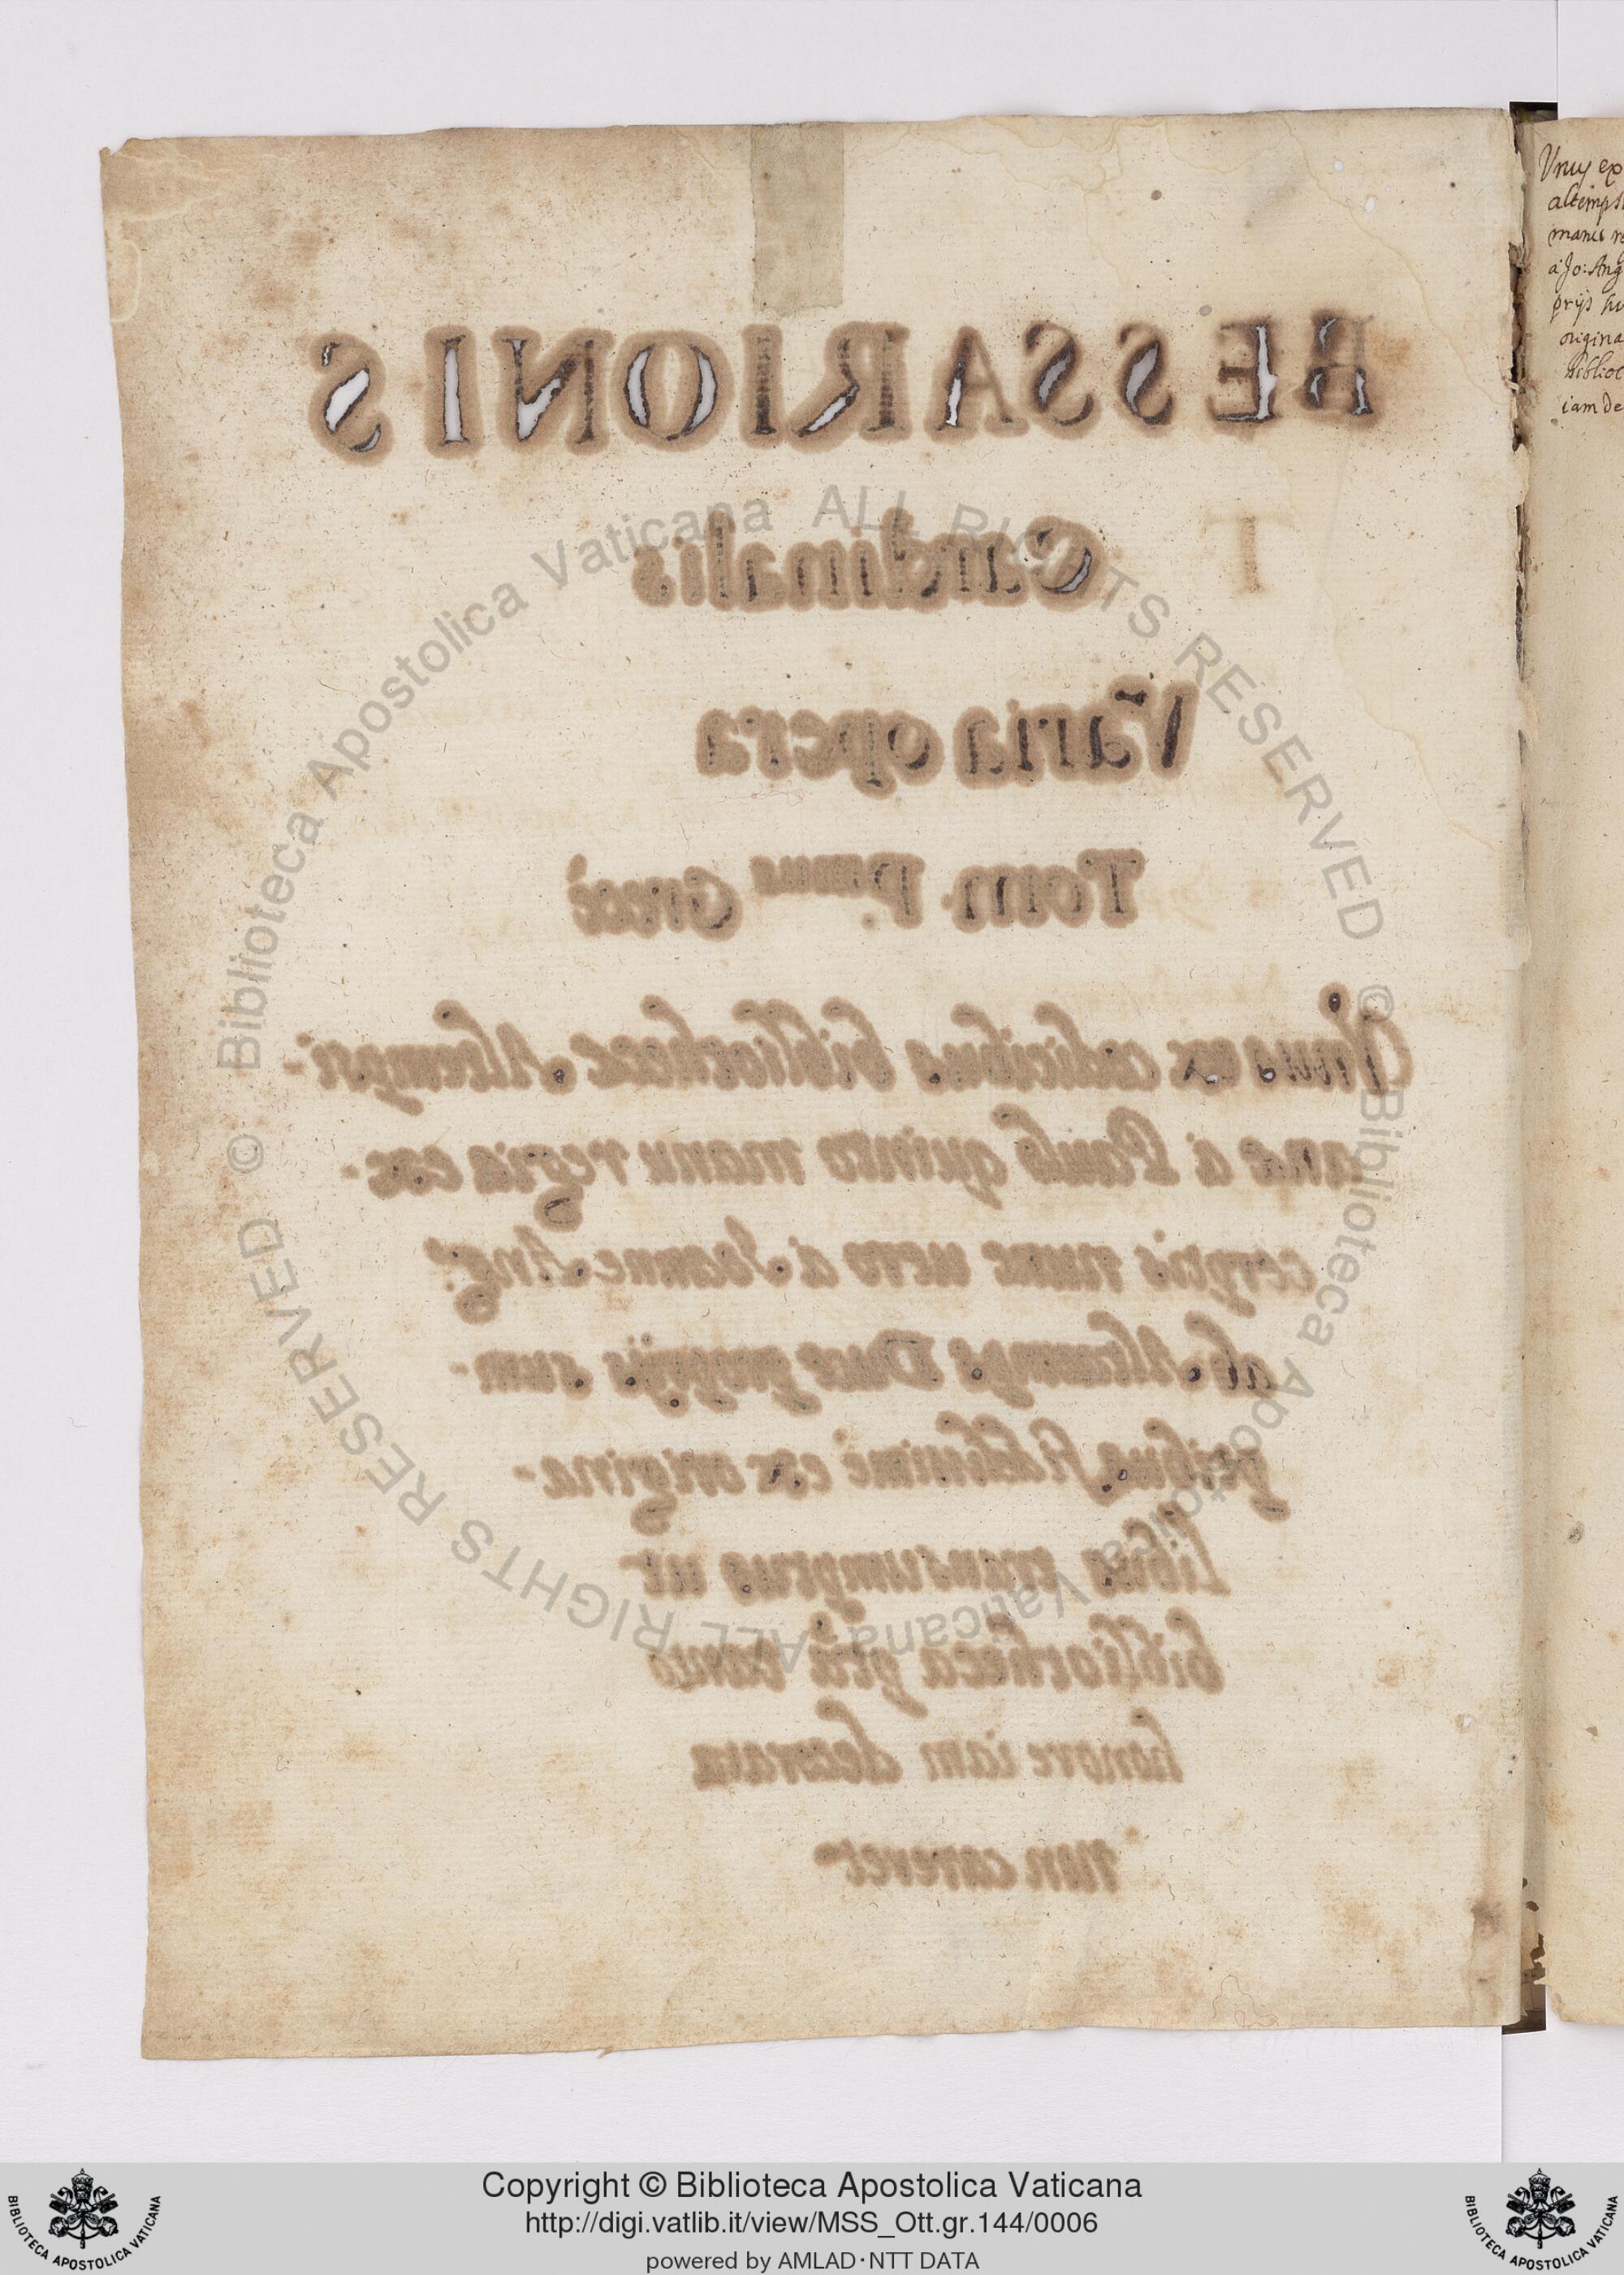 BESSARIONIS
Cardinalis
Varia opera
Tom. P.rimus Grecè
Vnus ex codicibus bibliothecae Altempsi-
anae a Paulo quinto manu regia exc-
ceptis nunc uero a Joanne Ang.
ab Altaemps Duce proprijs sum-
ptibus fidelissimè ex origina-
libus transumptus ut
bibliotheca pñs tanto
honore iam decorata
non careret
T
Vnus ex
altemps
manu re
a Jo: Ang
prijs su
origina
bibliot
iam de
© Biblioteca Apostolica Vaticana ALL RIGHTS RESERVED
© Biblioteca Apostolica Vaticana ALL RIGHTS RESERVED
Copyright © Biblioteca Apostolica Vaticana
http://digi.vatlib.it/view/MSS_Ott.gr.144/0006
powered by AMLAD·NTT DATA
BIBLIOTECA APOSTOLICA VATICANA
BIBLIOTECA APOSTOLICA VATICANA